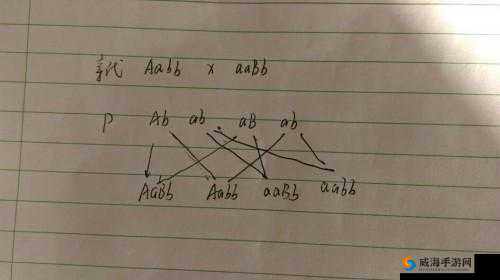 亲代 Aabb x aaBb
P Ab ab aB ab
AaBb Aabb aaBb aabb
威海手游网